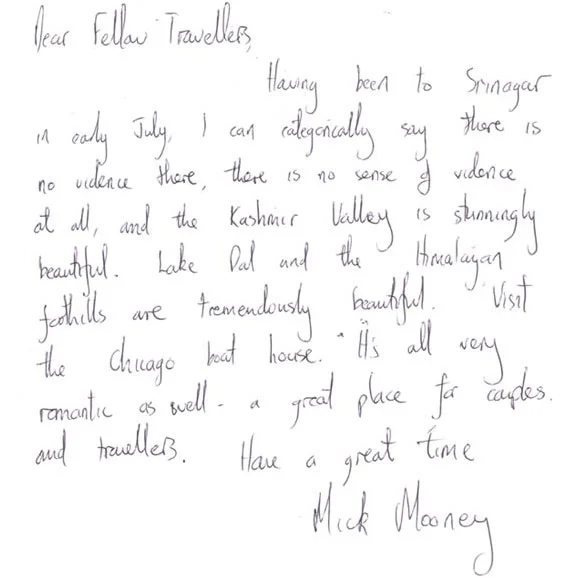 Dear Fellow Travellers,
Having been to Srinagar
in early July, I can categorically say there is
no violence there, there is no sense of violence
at all, and the Kashmir Valley is stunningly
beautiful. Lake Dal and the Himalayan
foothills are tremendously beautiful. Visit
the Chicago boat house. It's all very
romantic as well - a great place for couples.
and travellers. Have a great time
Mick Mooney